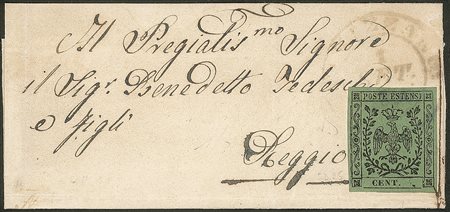 Il Pregialis.mo Signore
il Sigr. Benedetto Tedeschi
e figli
Reggio
POSTE ESTENSI
CENT.